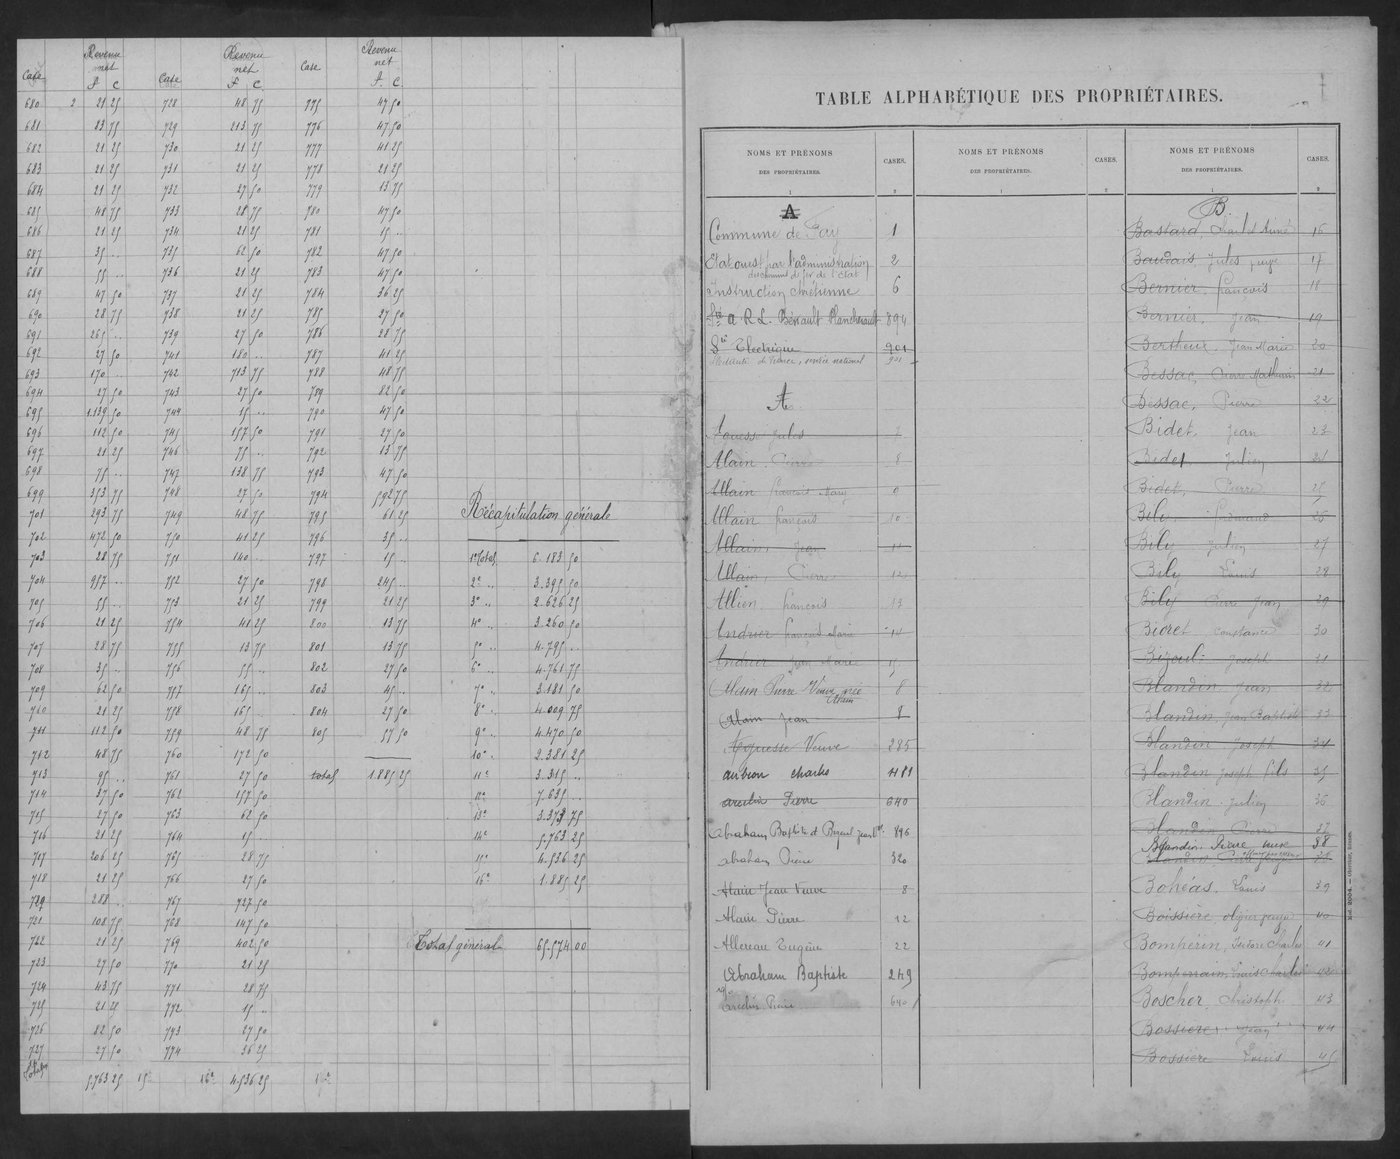 Case Revenu net Case Revenu net Case Revenu net
f c f c f. c.
680 2 21 25 728 48 75 775 47 50
681 83 75 729 213 75 776 47 50
682 21 25 730 21 25 777 41 25
683 21 25 731 21 25 778 21 25
684 21 25 732 27 50 779 13 75
685 48 75 733 28 75 780 47 50
686 21 25 734 21 25 781 15 ..
687 35 .. 735 62 50 782 47 50
688 55 .. 736 21 25 783 47 50
689 47 50 737 21 25 784 36 25
690 28 75 738 21 25 785 27 50
691 265 .. 739 27 50 786 28 75
692 27 50 741 180 .. 787 41 25
693 170 .. 742 713 75 788 48 75
694 27 50 743 27 50 789 82 50
695 1.139 50 744 15 .. 790 47 50
696 112 50 745 157 50 791 27 50
697 21 25 746 75 .. 792 13 75
698 75 .. 747 138 75 793 47 50
699 353 75 748 27 50 794 592 75
701 293 75 749 48 75 795 61 25
702 472 50 750 41 25 796 35 ..
703 28 75 751 140 .. 797 15 ..
704 957 .. 752 27 50 798 245 ..
705 55 .. 753 21 25 799 21 25
706 21 25 754 41 25 800 13 75
707 28 75 755 13 75 801 13 75
708 35 .. 756 55 .. 802 27 50
709 62 50 757 165 .. 803 45 ..
710 21 25 758 165 .. 804 27 50
711 112 50 759 48 75 805 57 50
712 48 75 760 172 50
713 95 .. 761 27 50 total 1.885 25
714 37 50 762 157 50
715 27 50 763 62 50
716 21 25 764 15 ..
717 206 25 765 28 75
718 21 25 766 27 50
719 288 .. 767 727 50
721 108 75 768 147 50
722 21 25 769 402 50
723 27 50 770 21 25
724 43 75 771 28 75
725 21 25 772 15 ..
726 82 50 773 27 50
727 27 50 774 36 25
Totaux 5.763 25 15e 16e 4.536 25
Récapitulation générale
1er Total 6.183 50
2e .. 3.395 50
3e .. 2.626 25
4e .. 3.260 50
5e .. 4.795 ..
6e .. 4.761 75
7e .. 3.181 50
8e .. 4.009 75
9e .. 4.470 50
10e .. 2.381 25
11e 3.315 ..
12e 7.635 ..
13e 3.373 75
14e 5.763 25
15e 4.536 25
16e 1.885 25
Total général 65.574 00
TABLE ALPHABÉTIQUE DES PROPRIÉTAIRES.
NOMS ET PRÉNOMS DES PROPRIÉTAIRES. CASES. NOMS ET PRÉNOMS DES PROPRIÉTAIRES. CASES. NOMS ET PRÉNOMS DES PROPRIÉTAIRES. CASES.
1 2 1 2 1 2
A
Commune de Fay 1
Etat ouest par l'administration 2
des chemins de fer de l'Etat
Instruction chrétienne 6
Sté a R L. Bérault Plancherault 894
Sté Electrique 901
Electricité de France, service national 901
A
Aouesse Jules 7
Alain Pierre 8
Allain François Marie 9
Allain François 10
Allain, Jean 11
Allain, Pierre 12
Allien, François 13
Andrier François Marie 14
Andrier Jean Marie 15
Alain Pierre Veuve née 8
Alain
Alain Jean 8
Veuve 285
aubron charles 481
Pierre 640
Abraham Baptiste et 896
abraham Pierre 320
Alain Jean Veuve 8
Alain Pierre 12
Allereau Eugène 22
Abraham Baptiste 249
Pierre 640
B
Bastard, Charles Aimé 16
Baudais Jules 17
Bernier François 18
Bernier, Jean 19
Bertheux, Jean Marie 20
Bessac, Pierre Mathurin 21
Bessac, Pierre 22
Bidet, Jean 23
Bidet Julien 24
Bidet, Pierre 25
Bily Edmond 26
Bily Julien 27
Bily Louis 28
Bily Pierre Jean 29
Bioret, Constance 30
Bizeul Joseph 31
Blandin Jean 32
Blandin Jean Baptiste 33
Blandin Joseph 34
Blandin Joseph fils 35
Blandin Julien 36
Blandin Pierre 37
Blandin Pierre veuve 38
Bohéas Louis 39
Boissière 40
Bomhérin, Isidore Charles 41
Louis Charles 42
Boscher, Christophe 43
Bossière Jean 44
Bossière Louis 45